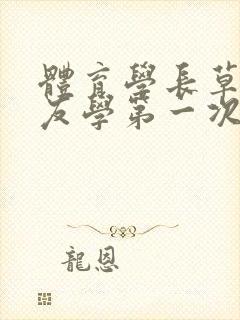 體育學長草
友學第一次
龍恩